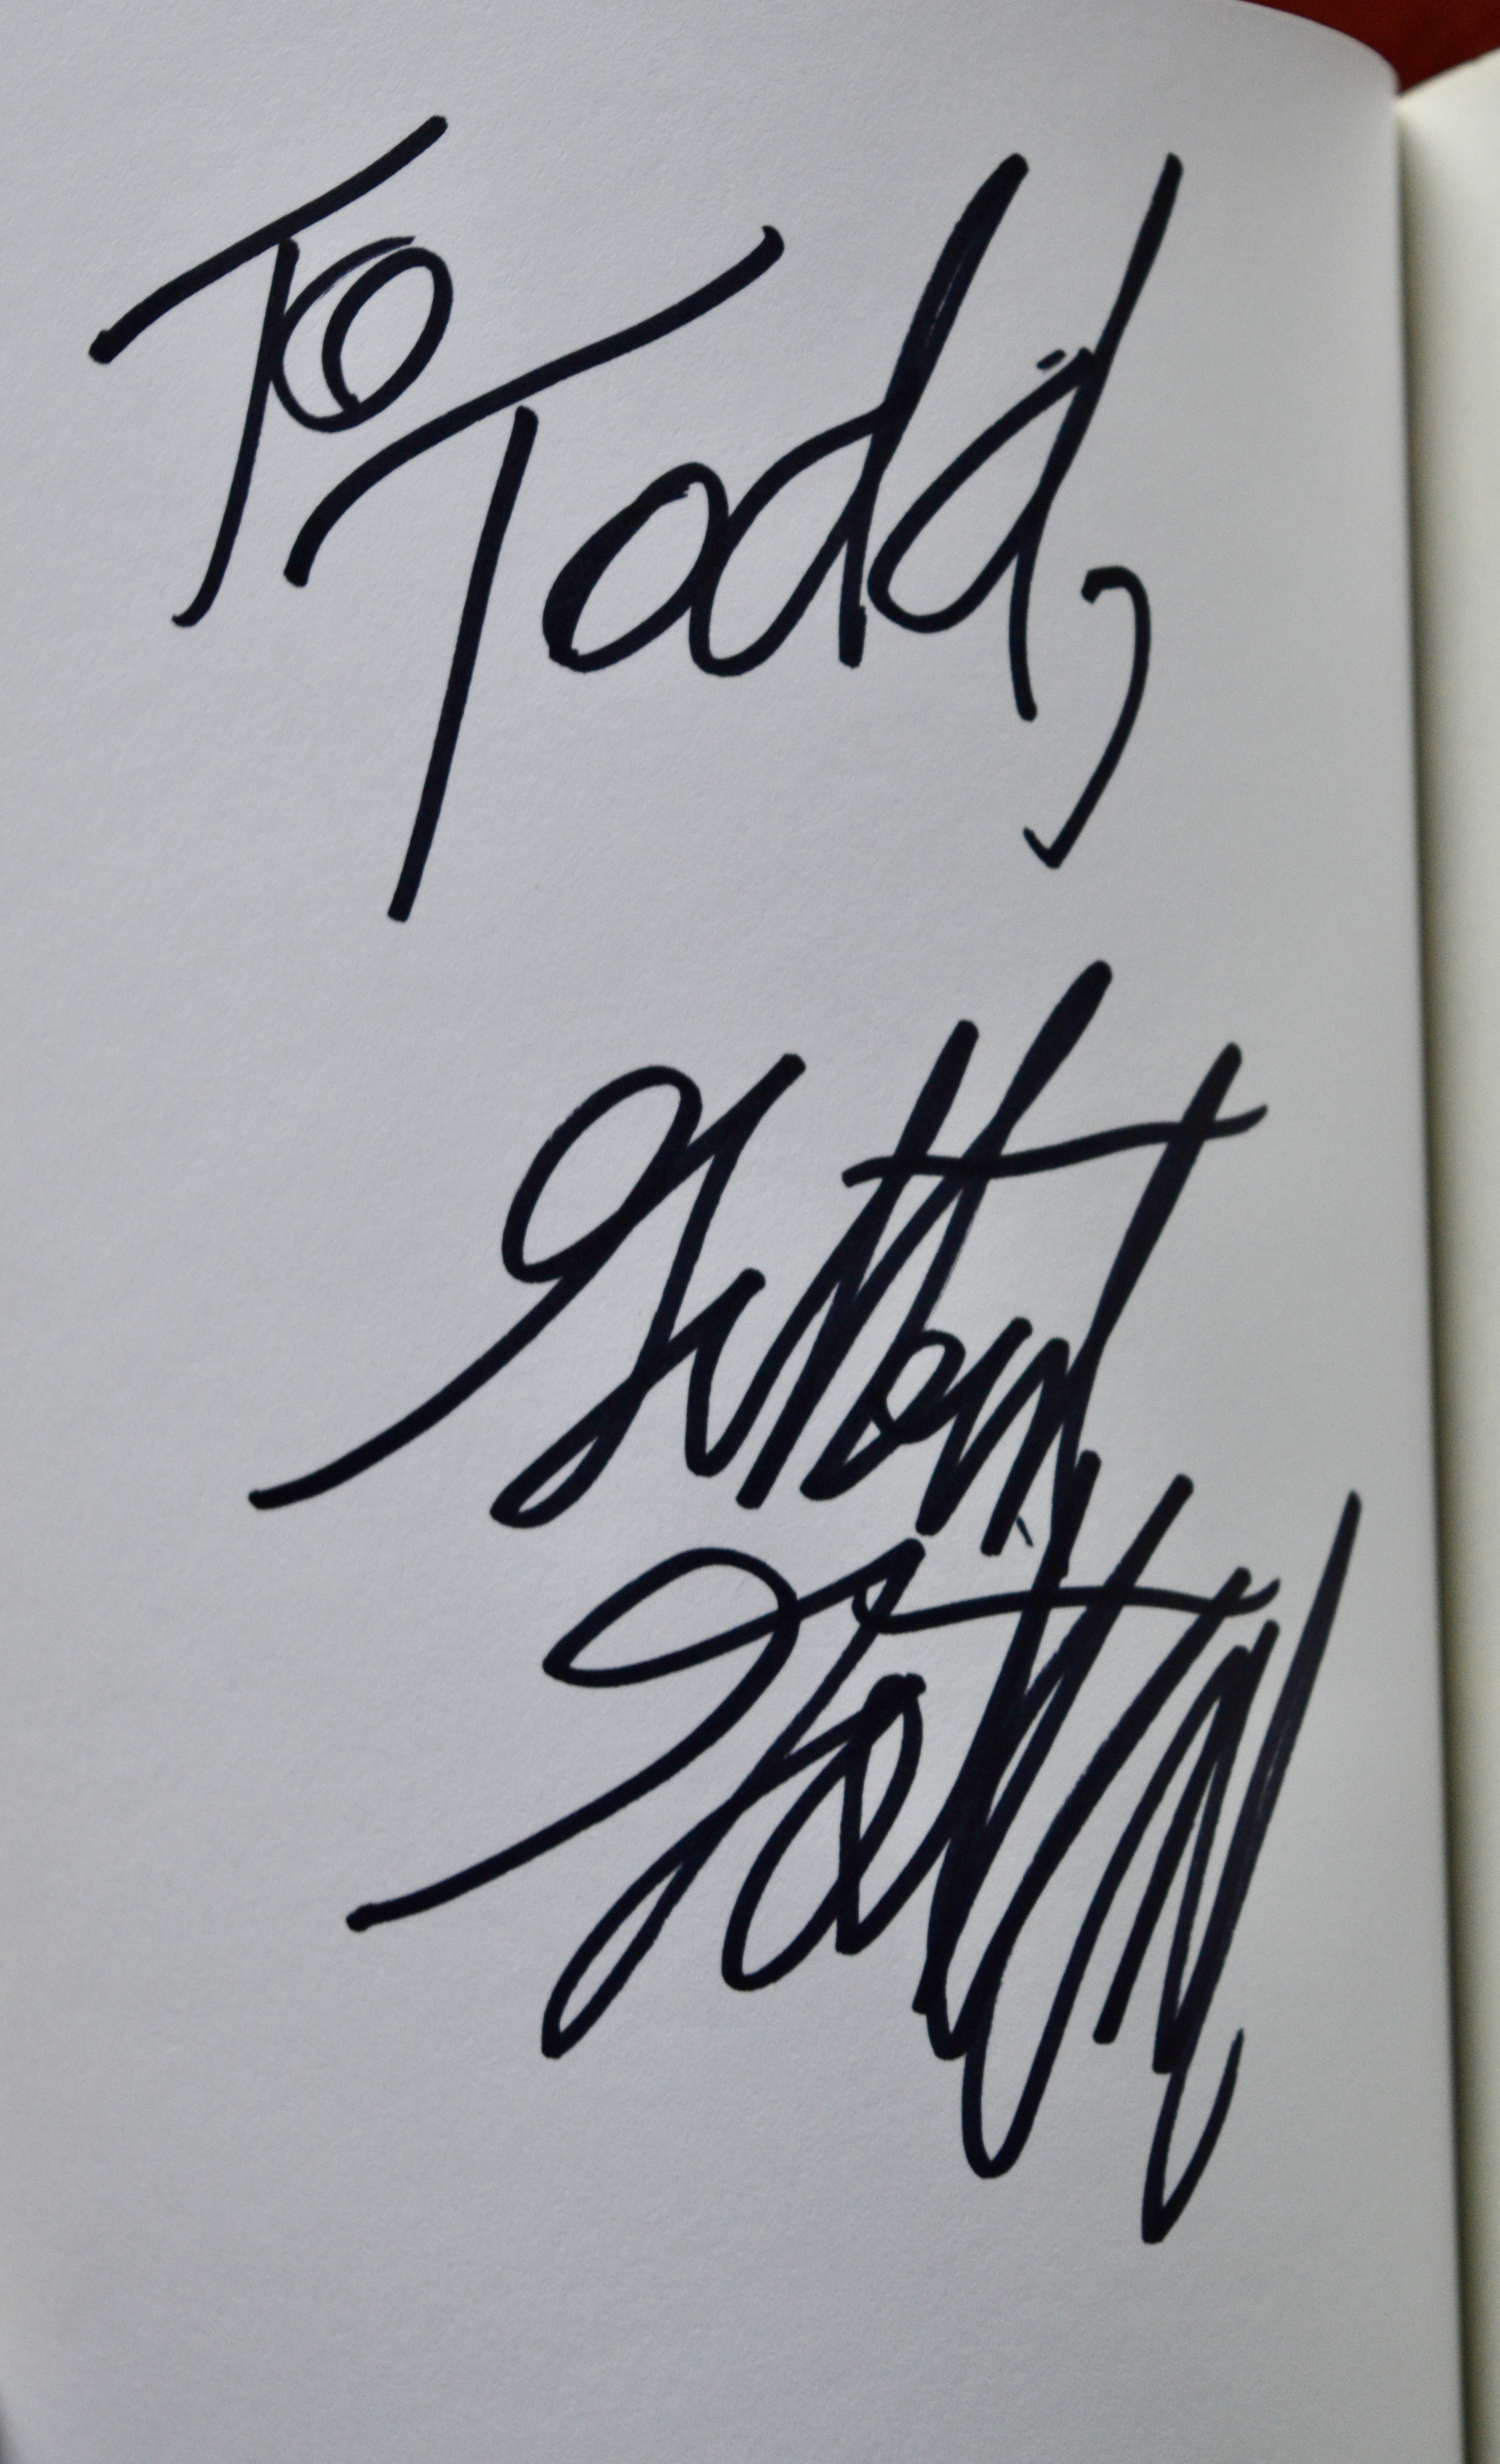 To
Todd,
Gilbert
Gottfried